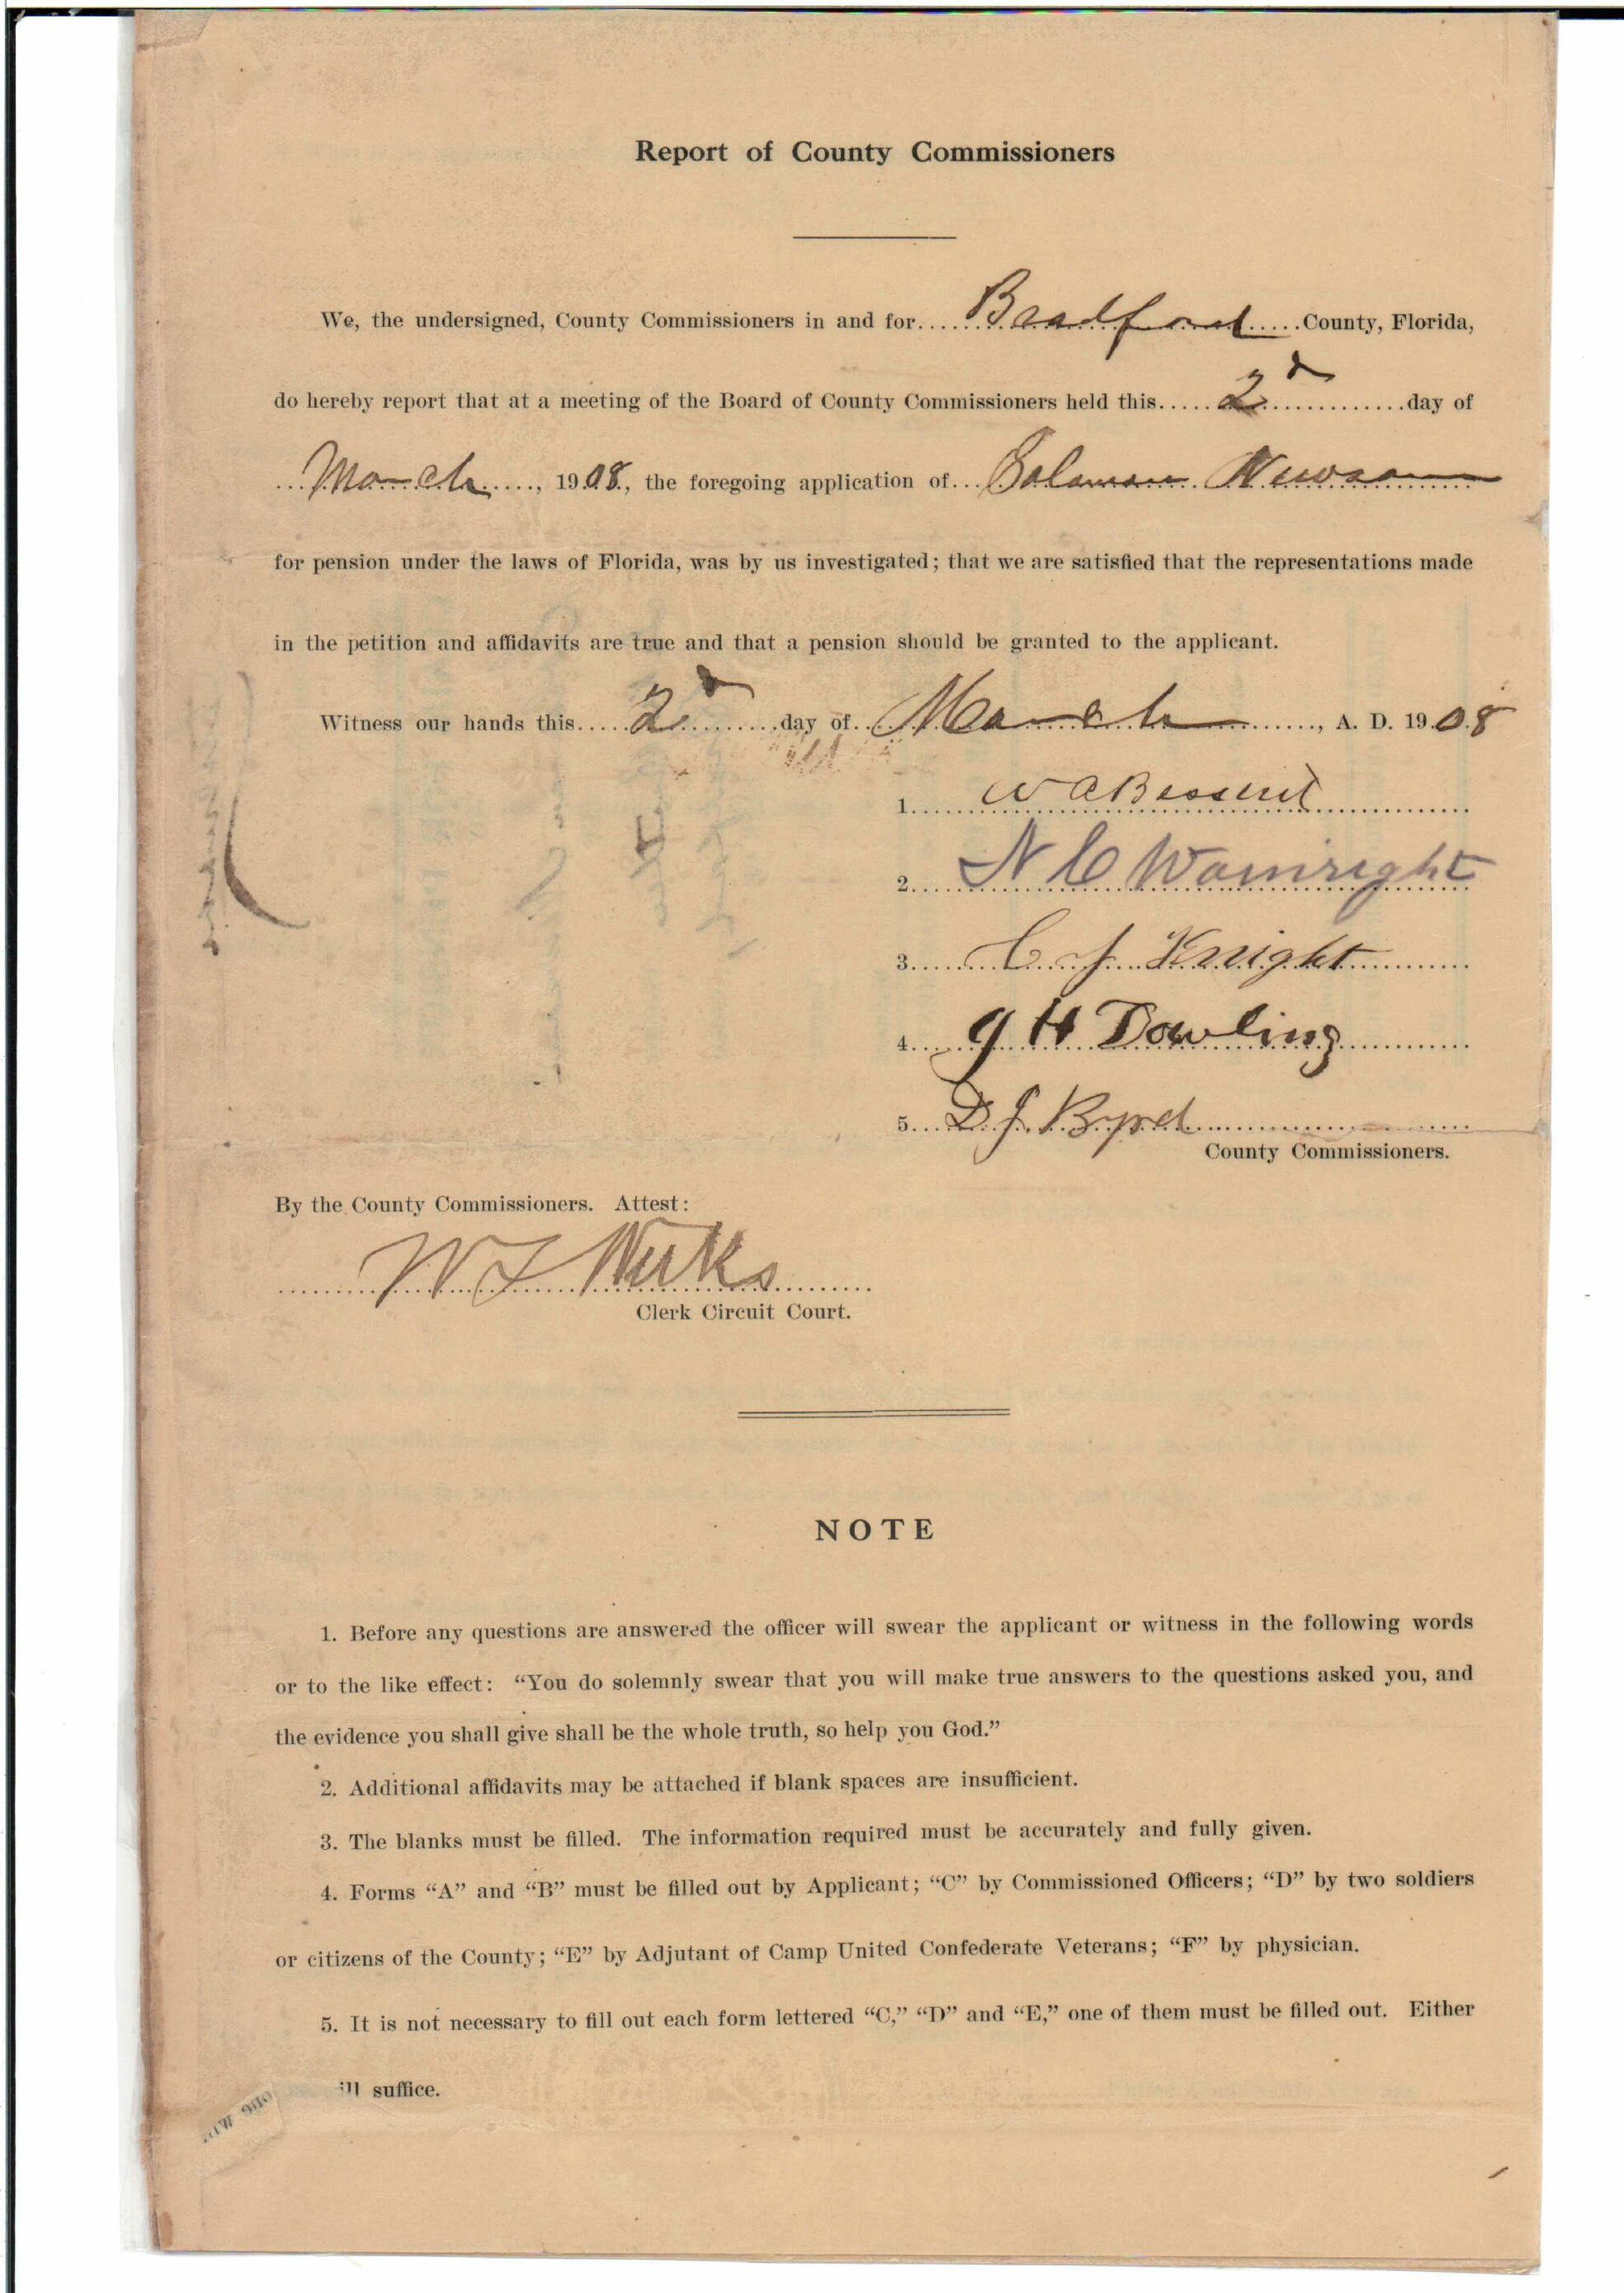 Report of County Commissioners
We, the undersigned, County Commissioners in and for.....Bradford.....County, Florida,
do hereby report that at a meeting of the Board of County Commissioners held this.....2d.....day of
...March....., 1908., the foregoing application of...Solaman Newson
for pension under the laws of Florida, was by us investigated; that we are satisfied that the representations made
in the petition and affidavits are true and that a pension should be granted to the applicant.
Witness our hands this.....2d.....day of...March....., A. D. 1908
1. W A Bessent
2. N C Wainright
3. C J Knight
4. J H Dowling
5. D J Byrd
County Commissioners.
By the County Commissioners. Attest:
W F Weeks
Clerk Circuit Court.
NOTE
1. Before any questions are answered the officer will swear the applicant or witness in the following words
or to the like effect: “You do solemnly swear that you will make true answers to the questions asked you, and
the evidence you shall give shall be the whole truth, so help you God.”
2. Additional affidavits may be attached if blank spaces are insufficient.
3. The blanks must be filled. The information required must be accurately and fully given.
4. Forms “A” and “B” must be filled out by Applicant; “C” by Commissioned Officers; “D” by two soldiers
or citizens of the County; “E” by Adjutant of Camp United Confederate Veterans; “F” by physician.
5. It is not necessary to fill out each form lettered “C,” “D” and “E,” one of them must be filled out. Either
ill suffice.